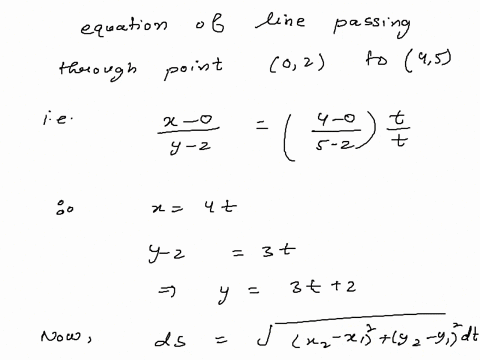 equation of line passing
through point (0,2) to (4,5)
i.e. (x-0)/(y-2) = ((4-0)/(5-2)) t/t
∴ x = 4t
y-2 = 3t
⇒ y = 3t+2
Now, ds = √((x₂-x₁)²+(y₂-y₁)²) dt